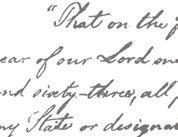 "That on the
ear of our Lord on
nd sixty-three, all
ny State or designa